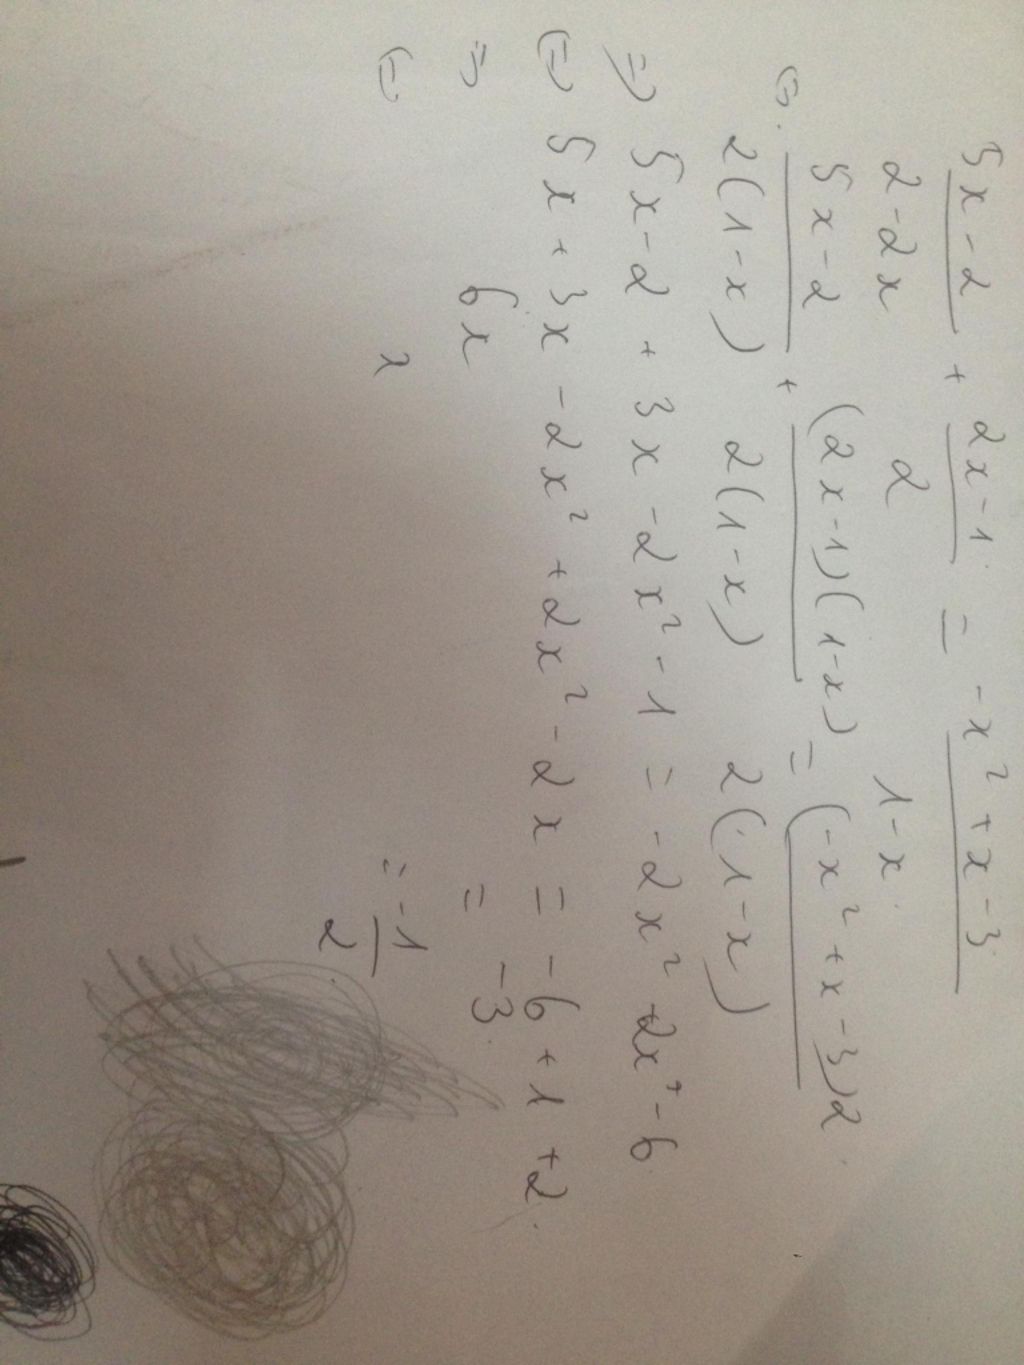 5x-2 / 2-2x + 2x-1 / 2 = -x² + x - 3 / 1-x.
(=). 5x-2 / 2(1-x) + (2x-1)(1-x) / 2(1-x) = (-x² + x - 3)2 / 2(1-x)
=) 5x-2 + 3x - 2x² - 1 = -2x² + 2x - 6
(=) 5x + 3x - 2x² + 2x² - 2x = -6 + 1 + 2.
=) 6x = -3.
(=) x = -1 / 2